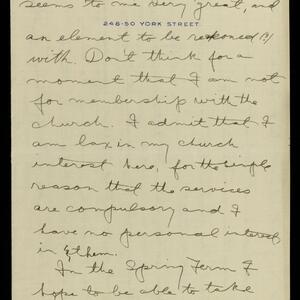 seems to me very great, and
248-50 YORK STREET
an element to be reckoned (?)
with. Don't think for a
moment that I am not
for membership with the
church. I admit that I
am lax in my church
interest here, for the simple
reason that the services
are compulsory and I
have no personal interest
in them.
In the Spring Term I
hope to be able to take